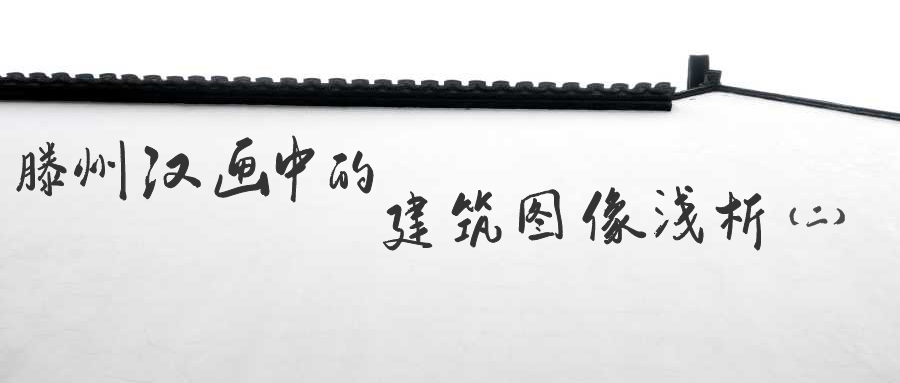 滕州汉画中的
建筑图像浅析（二）